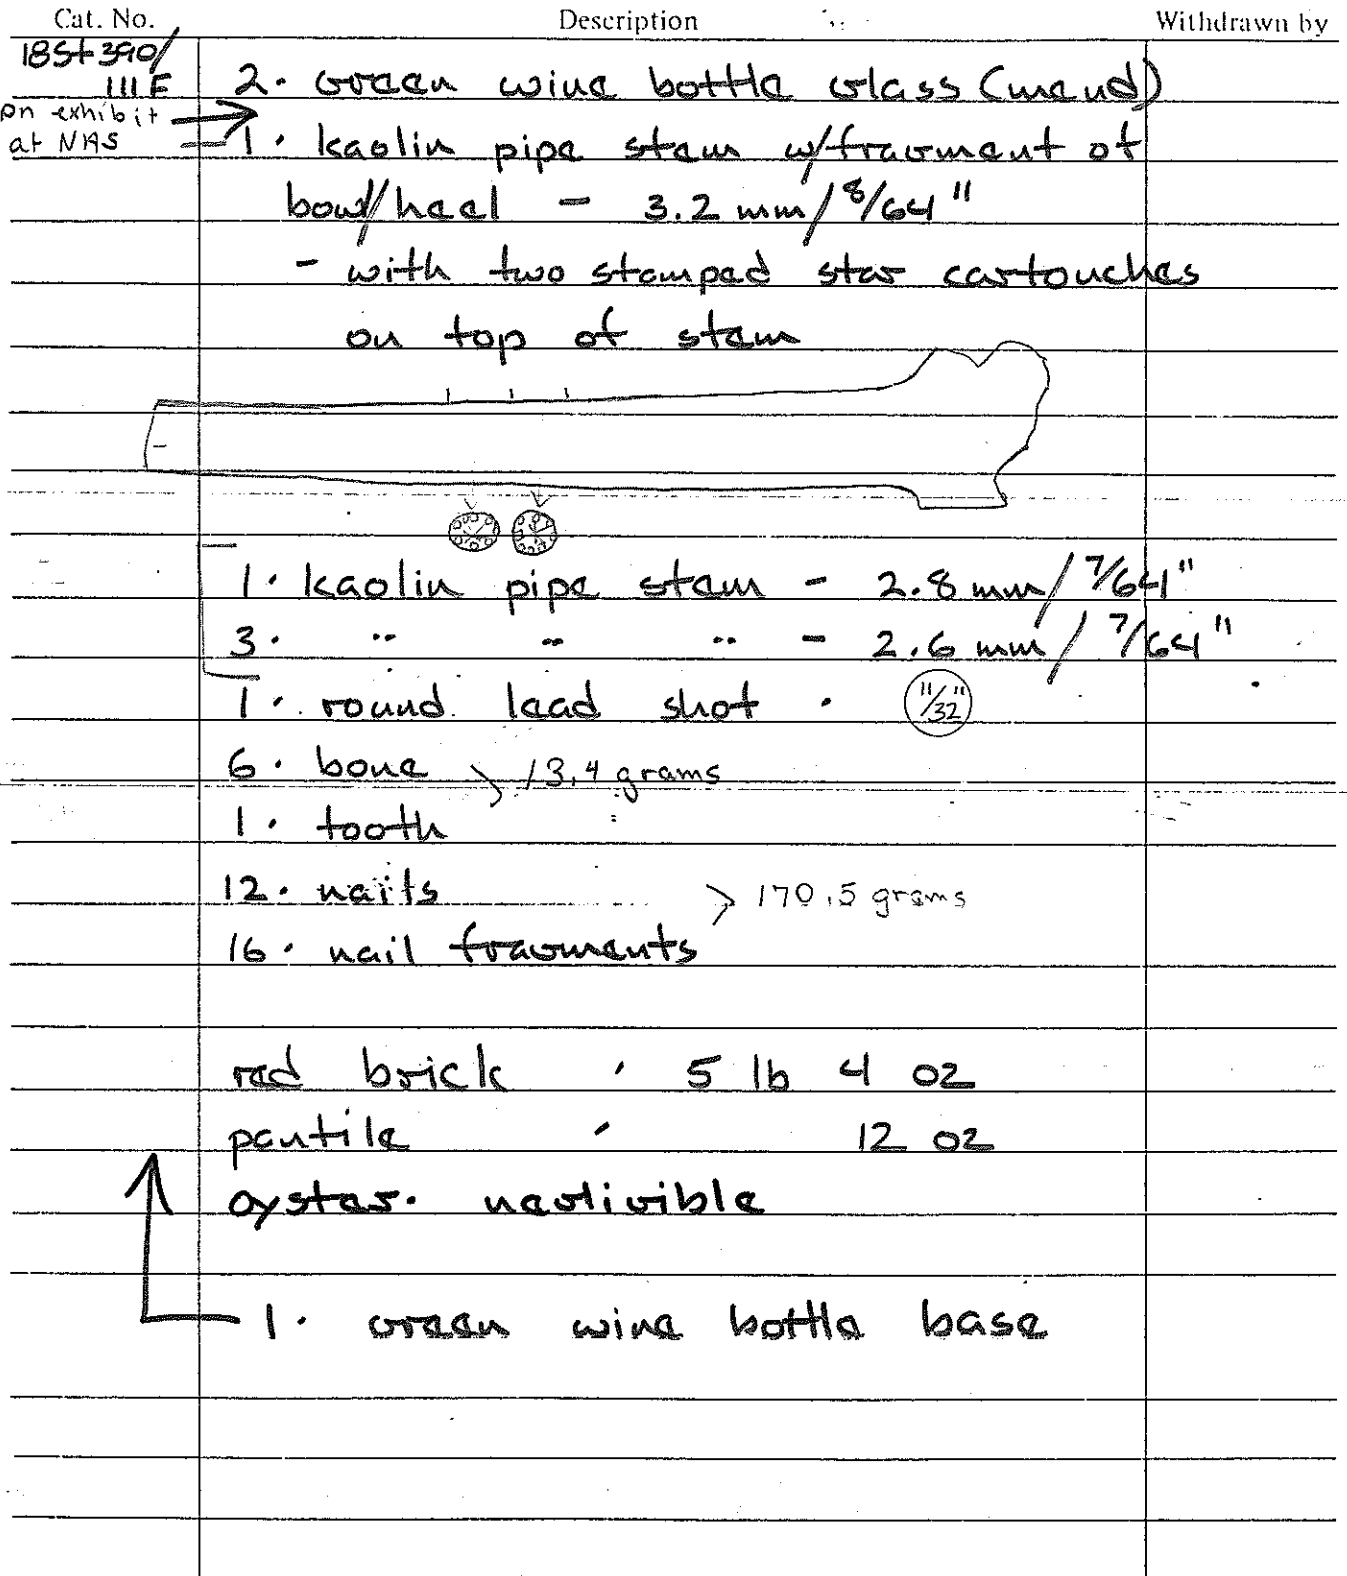 Cat. No. Description Withdrawn by
18St390/
111F 2. Green wine bottle glass (mend)
on exhibit
at NAS 1. kaolin pipe stem w/fragment of
bowl/heel - 3.2 mm/8/64"
- with two stamped star cartouches
on top of stem
1. kaolin pipe stem - 2.8 mm/7/64"
3. " " " - 2.6 mm/7/64"
1. round lead shot . 11/32"
6. bone > 13.4 grams
1. tooth
12. nails > 170.5 grams
16. nail fragments
red brick . 5 lb 4 oz
pantile . 12 oz
oyster. negligible
1. green wine bottle base